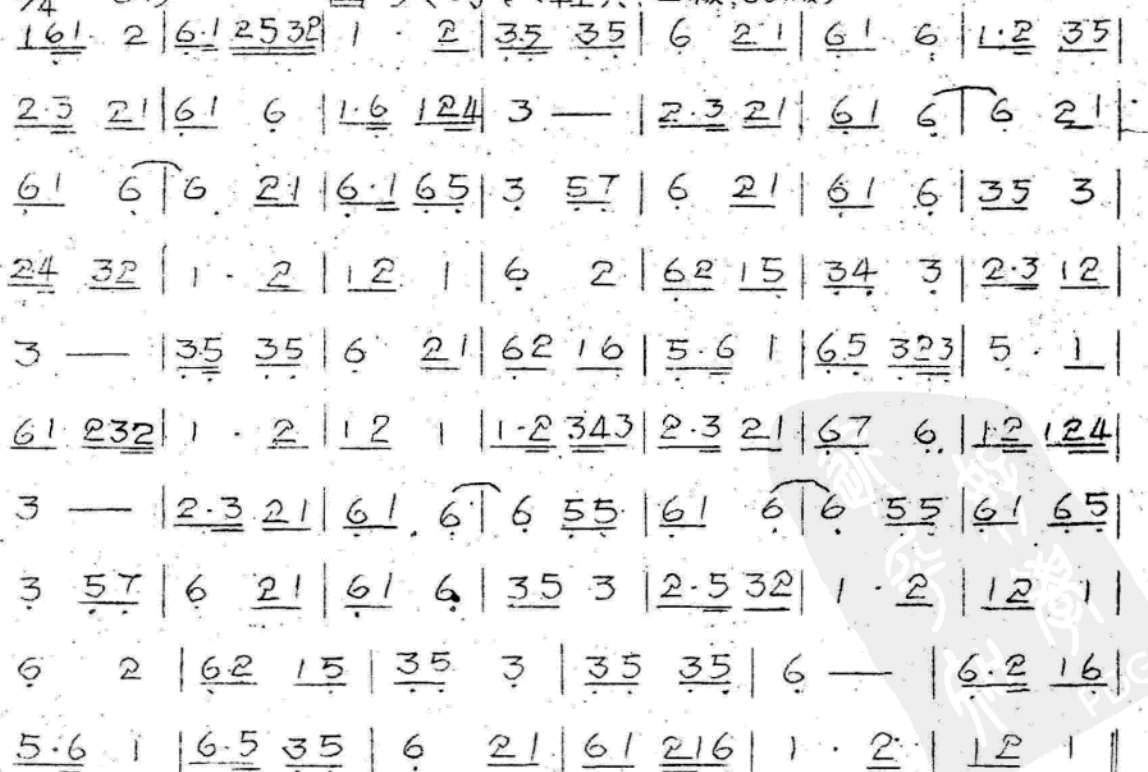 161· 2 | 6·1 2532 | 1 · 2 | 35 35 | 6 21 | 61 6 | 1·2 35 |
2·3 21 | 61 6 | 1·6 124 | 3 — | 2·3 21 | 61 6 | 6 21 |
61 6 | 6 21 | 6·1 65 | 3 57 | 6 21 | 61 6 | 35 3 |
24 32 | 1 · 2 | 12 1 | 6 2 | 62 15 | 34 3 | 2·3 12 |
3 — | 35 35 | 6 21 | 62 16 | 5·6 1 | 65 323 | 5 · 1 |
61 232 | 1 · 2 | 12 1 | 1·2 343 | 2·3 21 | 67 6 | 12 124 |
3 — | 2·3 21 | 61 6 | 6 55 | 61 6 | 6 55 | 61 65 |
3 57 | 6 21 | 61 6 | 35 3 | 2·5 32 | 1 · 2 | 12 1 |
6 2 | 62 15 | 35 3 | 35 35 | 6 — | 6·2 16 |
5·6 1 | 6·5 35 | 6 21 | 61 216 | 1 · 2 | 12 1 ‖
PDG